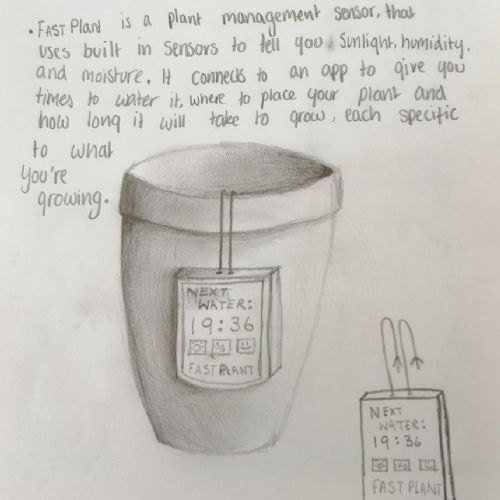 • FAST Plant is a plant management sensor, that
uses built in sensors to tell you sunlight, humidity,
and moisture. It connects to an app to give you
times to water it, where to place your plant and
how long it will take to grow, each specific
to what
you're
growing.
NEXT
WATER:
19:36
FAST PLANT
NEXT
WATER:
19:36
FAST PLANT